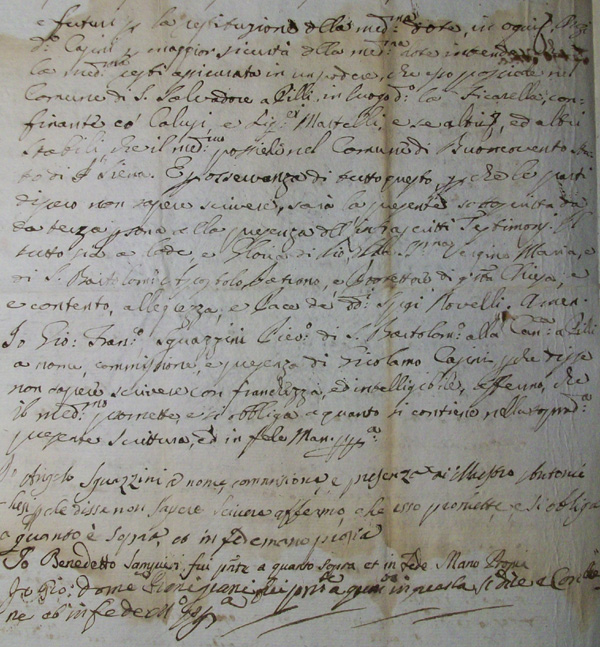 e futuri p la restituzione della med:ma dote, in ogni
d:o Casini p maggior sicurtà della med:ma dote intende
la med:ma resti assicurata in un podere, che esso possiede nel
Comune di S. Salvadore a Pilli in luogo d:o la Ficarella, con-
finante co' Calusi, e Sig:ri Martelli, e se altri, ed altri
Stabili che il med:mo possiede nel Comune di Buonconvento Sta-
to di Siena. E p osservanza di tutto questo p che le parti
dissero non sapere scrivere, sarà la presente sottoscritta da
da terza p sona alla presenza dell' infrascritti Testimonj. Il
tutto sia a lode, e Gloria di Vergine Maria, e
di S. Bartolomeo Apostolo Padrone, e Protettore di q:sta Chiesa, e
e contento, allegrezza, e Pace de' dd:i Sposi Novelli. Amen.
Io Gio: Fran:co Sguazzini Vic:o di S. Bartolom:o alla a Pilli
a nome, commissione, e presenza di Girolamo Casini p che disse
non sapere scrivere con franchezza, ed intelligibile, affermo, che
il med:mo promette, e si obliga a quanto si contiene nella soprad:a
presente Scrittura, ed in fede Man. pp:a
Io Angelo Sguazzini a nome, commissione, e presenza di Mastro Antonio
p che disse non sapere scrivere affermo, che esso promette, e si obliga
a quanto è sopra, ed in fede mano propria
Io Benedetto fui p:nte a quanto sopra et in fede Mano Propia
Io Gio: Dome:co fui p:nte a quanto in questa si dice e Contie-
ne ed in fede M. pp:a